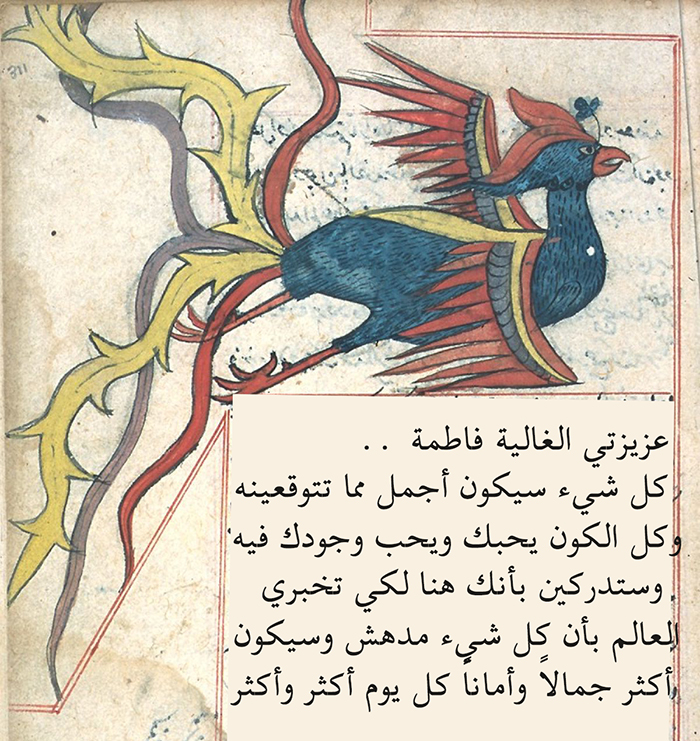 عزيزتي الغالية فاطمة ..
كل شيء سيكون أجمل مما تتوقعينه
وكل الكون يحبك ويحب وجودك فيه
وستدركين بأنك هنا لكي تخبري
العالم بأن كل شيء مدهش وسيكون
أكثر جمالاً وأماناً كل يوم أكثر وأكثر